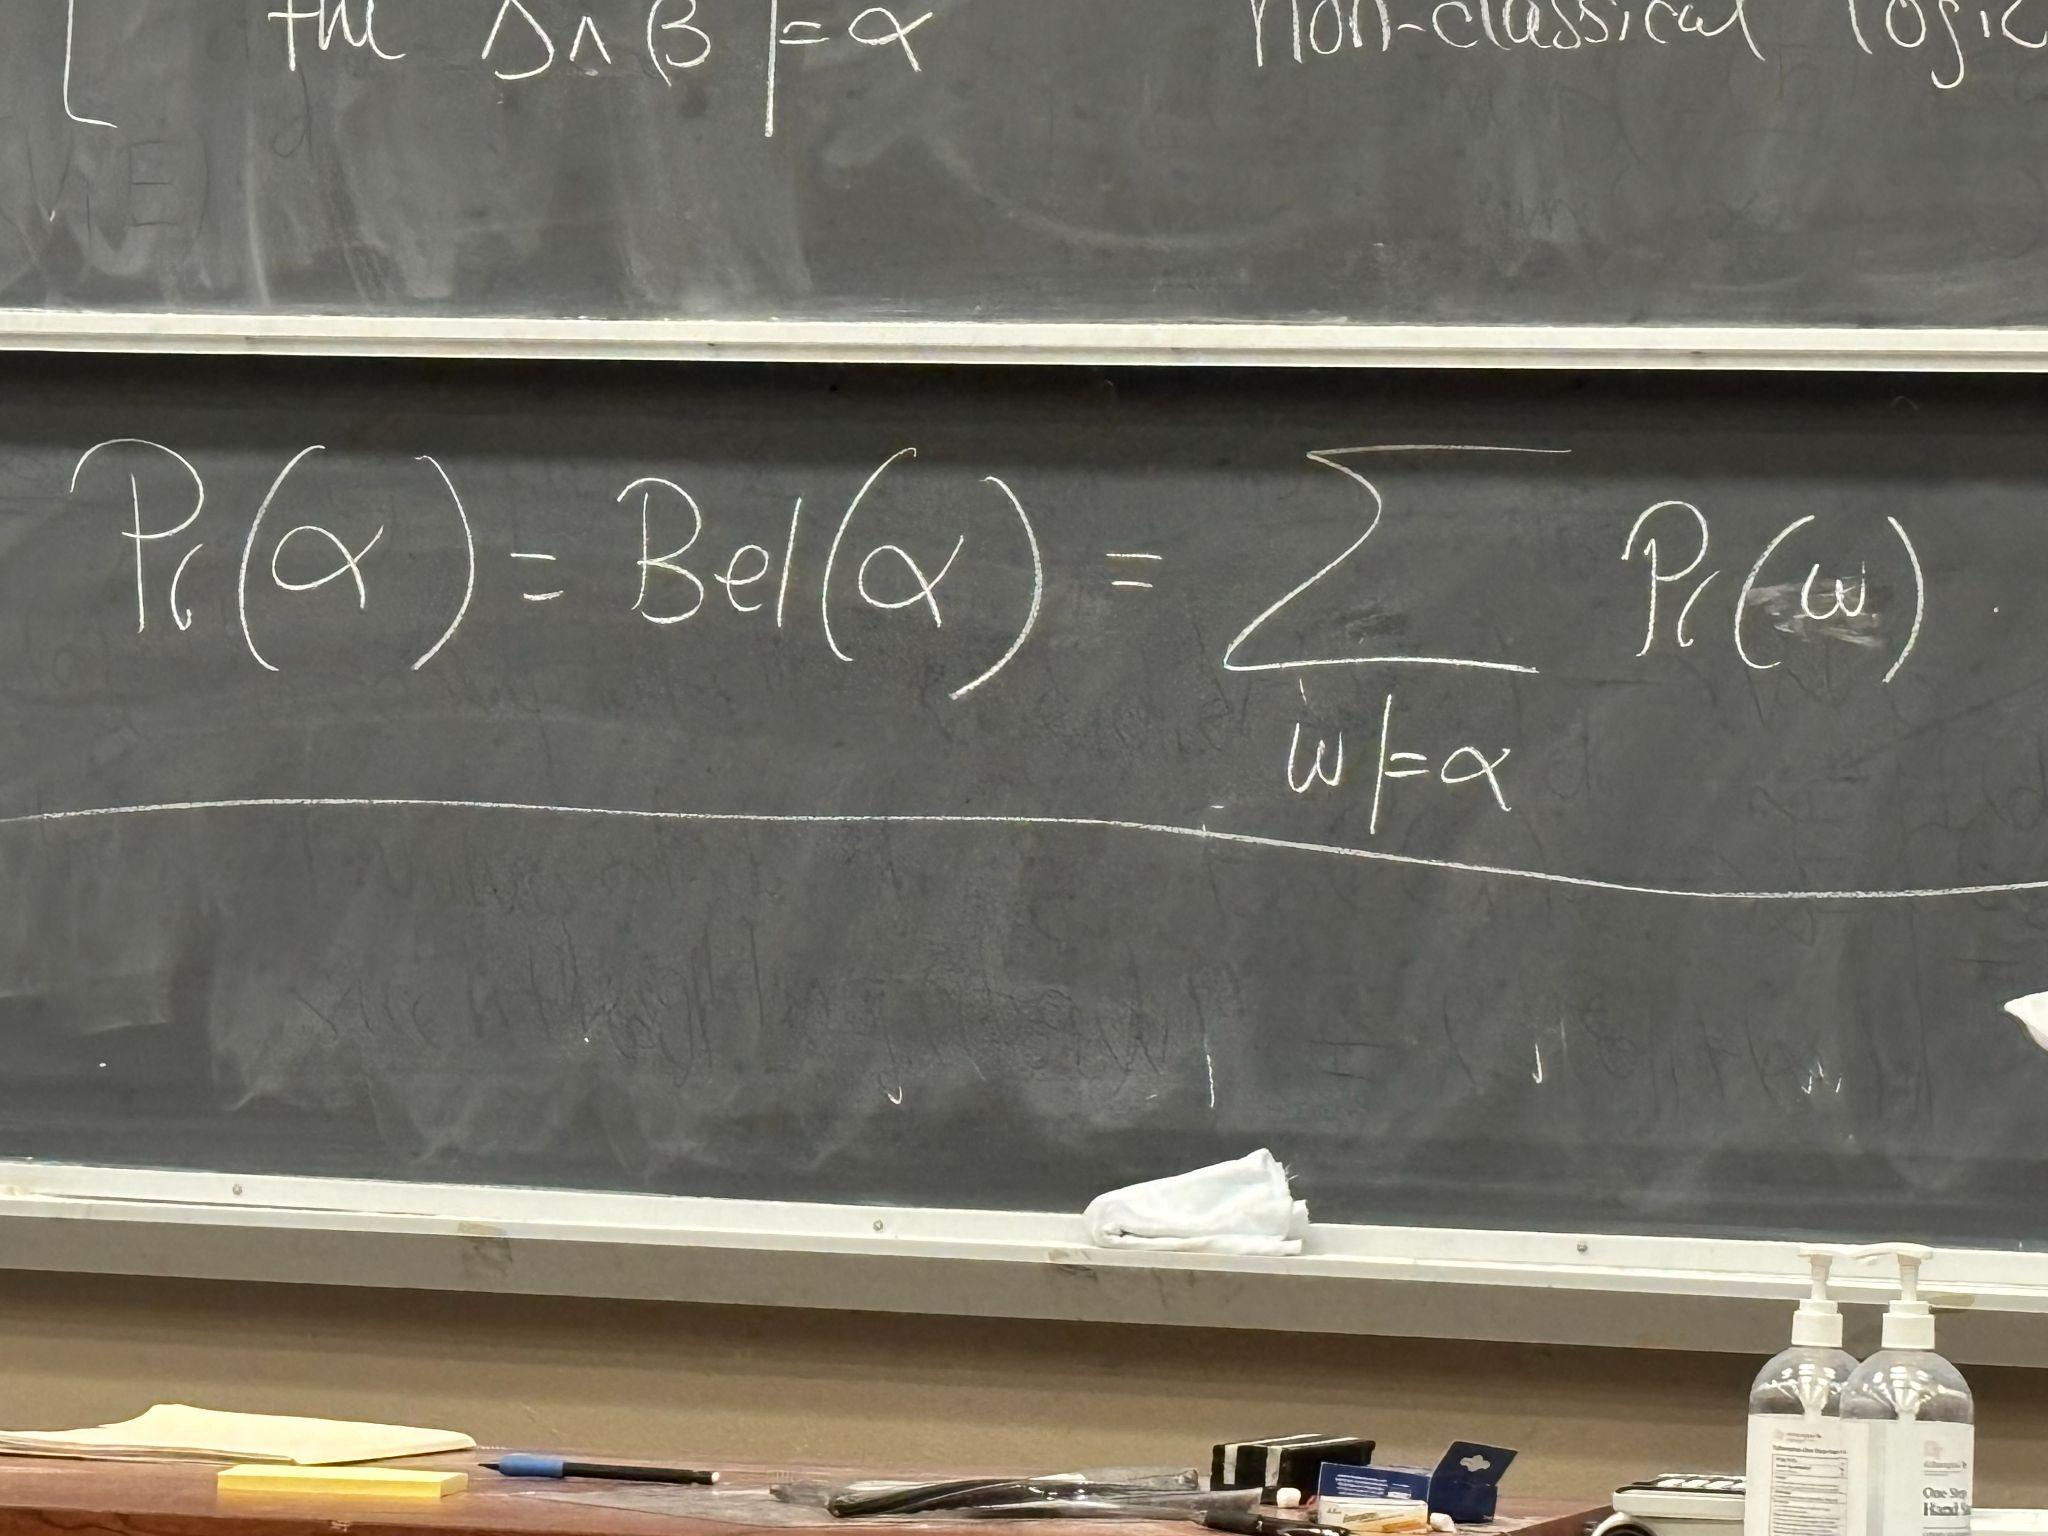 the Δ∧β ⊨ α non-classical logic
Pr(α) = Bel(α) = Σ Pr(ω).
ω ⊨ α
One Step
Hand S